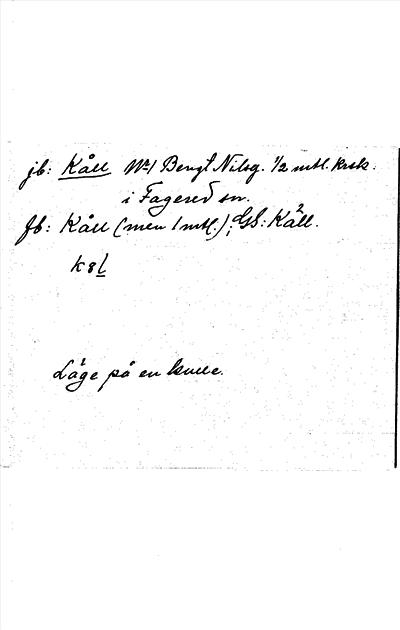 jb: Kåll No 1 Bengt Nilsg. 1/2 mtl. krsk.
i Fagered sn.
fb: Kåll (men 1 mtl.); GS: Kåll.
k 8 l
Läge på en kulle.